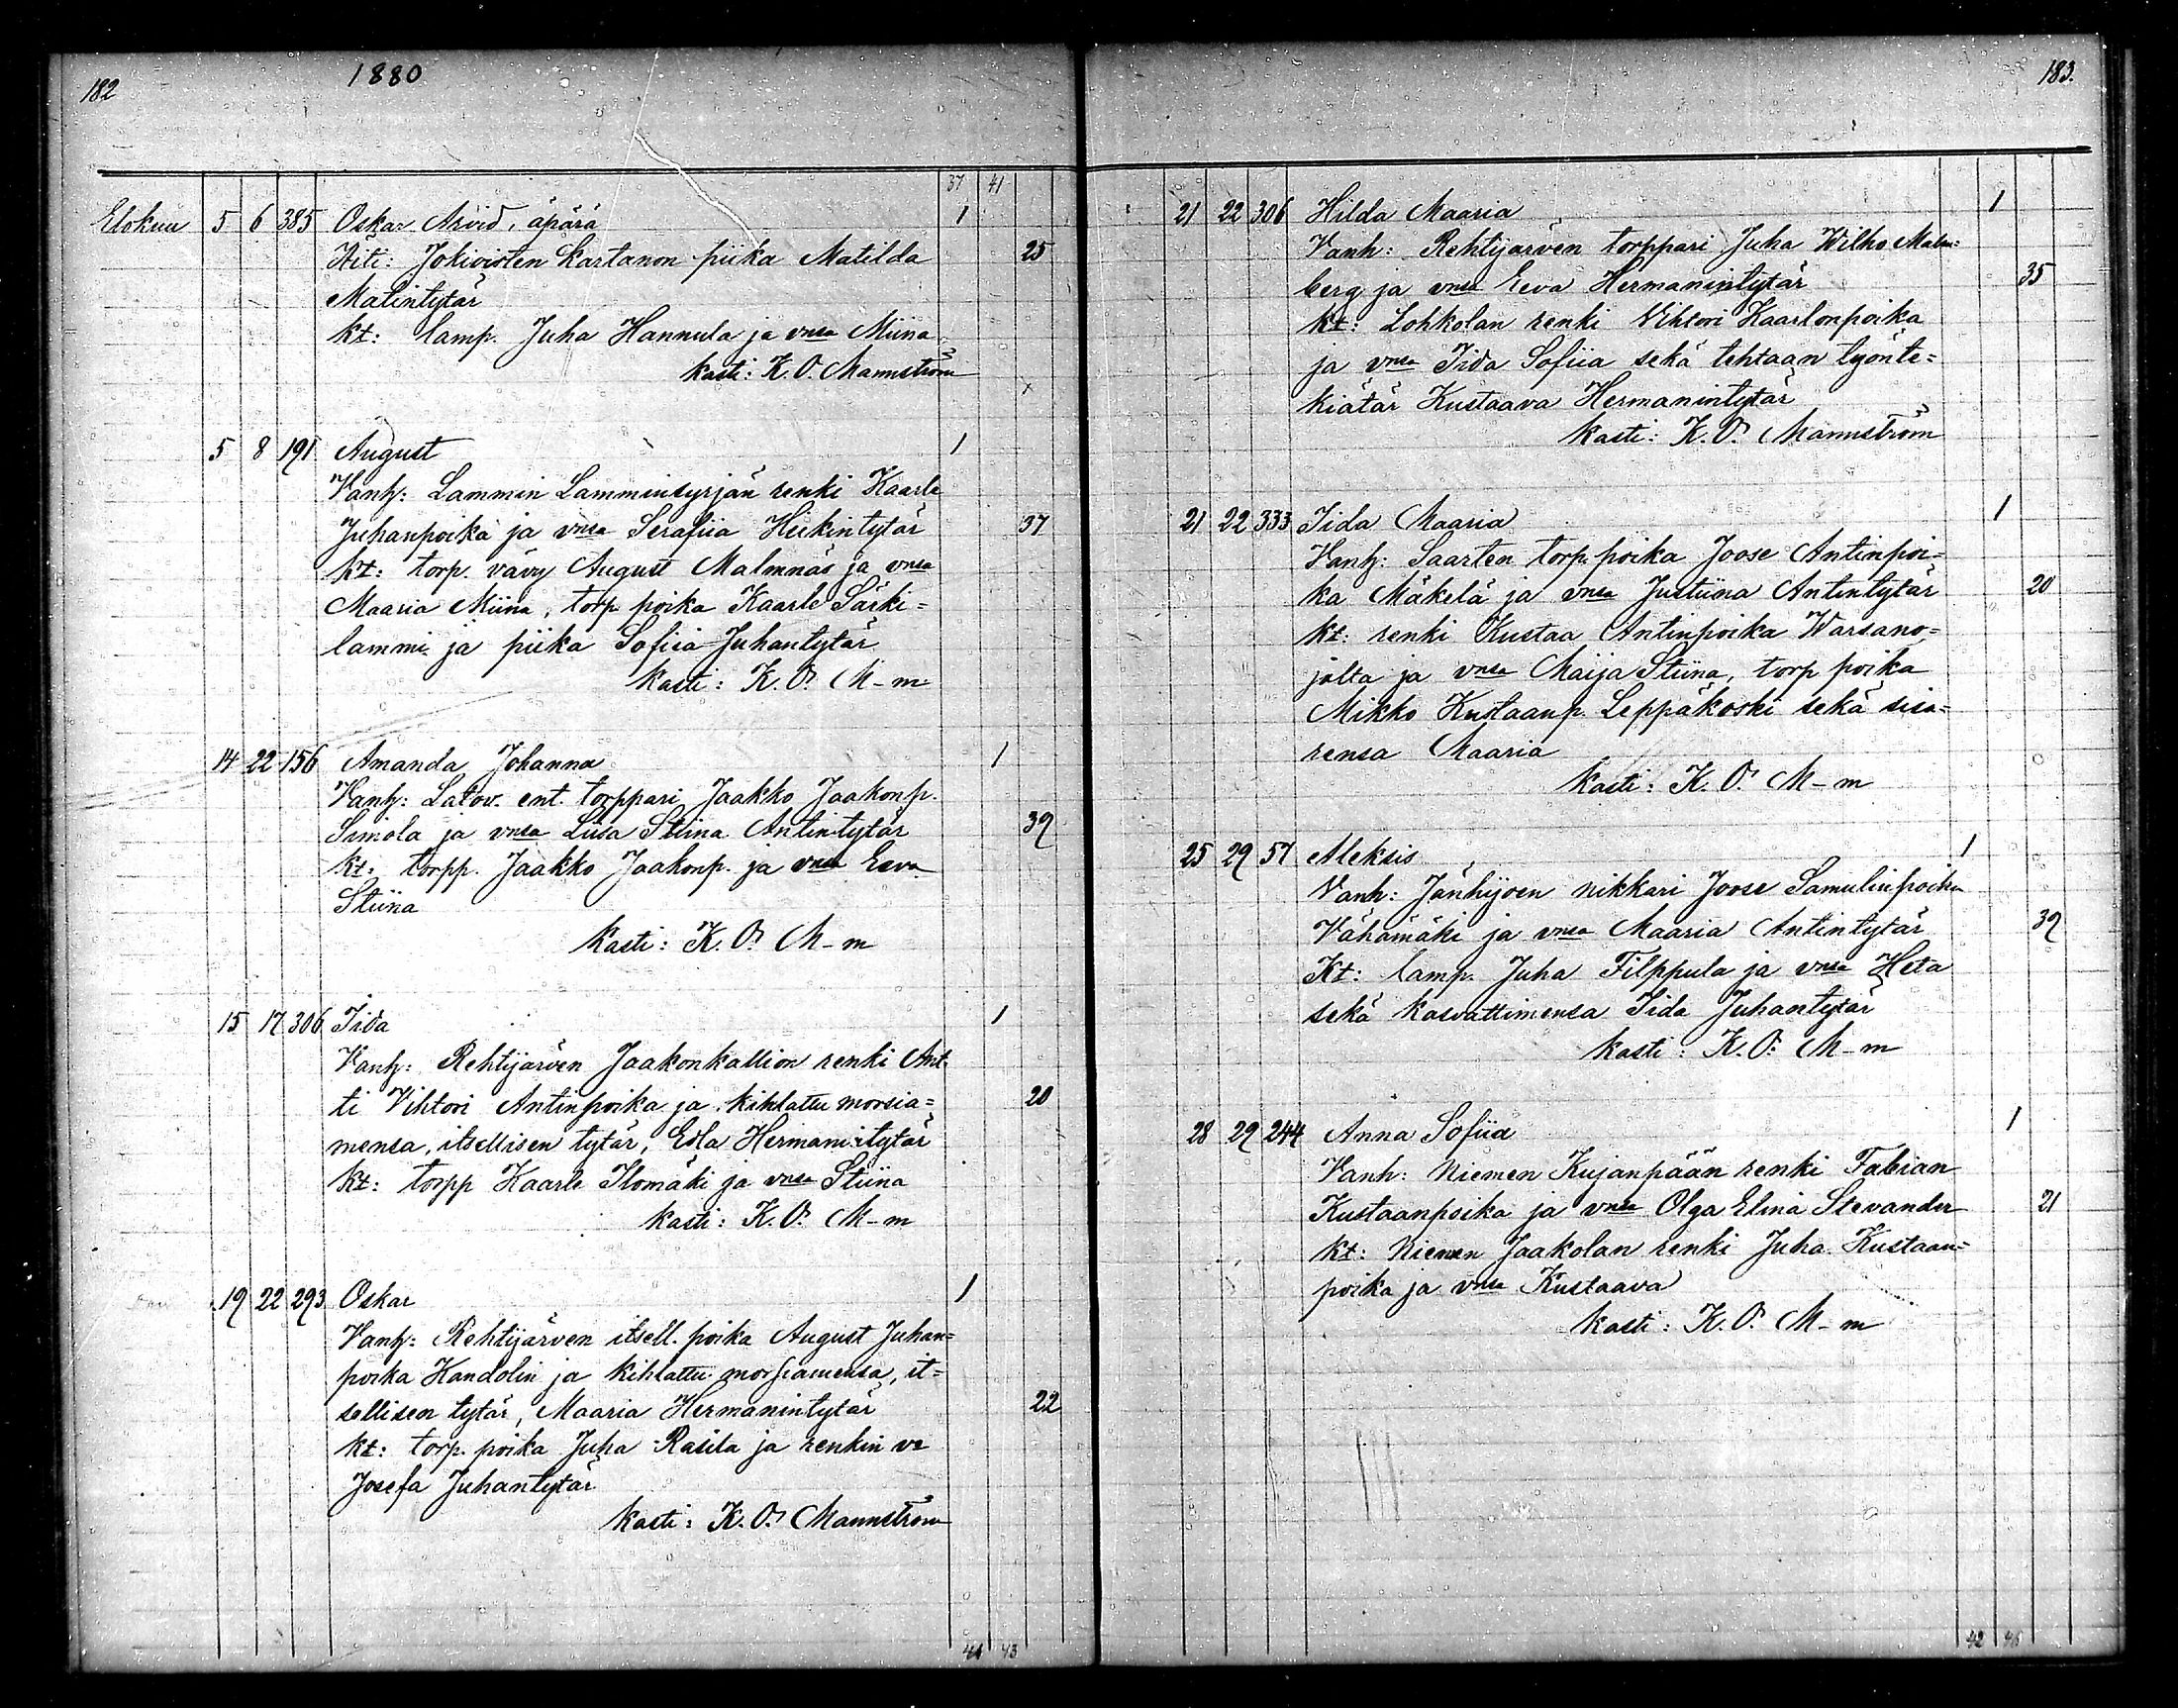 182
1880
37 41
Elokuu 5 6 385 Oskar Arvid, äpärä 1
Äiti: Jokioisten Kartanon piika Matilda 25
Matintytär
kt: lamp. Juha Hannula ja vnsa Miina
kasti: K. O. Mannström
x
5 8 191 August 1
Vanh: Lammin Lamminsyrjän renki Kaarle
Juhanpoika ja vnsa Serafiia Heikintytär 37
kt: torp. vävy August Malmnäs ja vnsa
Maaria Miina, torp poika Kaarle Särki=
lammi ja piika Sofiia Juhantytär
kasti: K. O. M-m
14 22 156 Amanda Johanna 1
Vanh: Latov. ent. torppari Jaakko Jaakonp.
Simola ja vnsa Liisa Stiina Antintytär 39
kt: torpp. Jaakko Jaakonp. ja vnsa Eeva
Stiina
kasti: K. O. M-m
15 17 306 Iida 1
Vanh: Rehtijärven Jaakonkallion renki Ant-
ti Vihtori Antinpoika ja kihlattu morsia= 20
mensa, itsellisen tytär, Edla Hermanintytär
kt: torpp Kaarle Ilomäki ja vnsa Stiina
kasti: K. O. M-m
19 22 293 Oskar 1
Vanh: Rehtijärven itsell. poika August Juhan=
poika Kandolin ja kihlattu morsiamensa, it=
sellisen tytär, Maaria Hermanintytär 22
kt: torp. poika Juha Rasila ja renkin va
Josefa Juhantytär
kasti: K. O. Mannström
41 43
183.
21 22 306 Hilda Maaria 1
Vanh: Rehtijärven torppari Juha Wilho Malm=
berg ja vnsa Eeva Hermanintytär 35
kt: Lohkolan renki Vihtori Kaarlonpoika
ja vnsa Iida Sofiia sekä tehtaan työnte=
kiätär Kustaava Hermanintytär
kasti: K. O. Mannström
21 22 333 Iida Maaria 1
Vanh: Saarten torp. poika Joose Antinpoi=
ka Mäkelä ja vnsa Justiina Antintytär 20
kt: renki Kustaa Antinpoika Warsano=
jalta ja vnsa Maija Stiina, torp poika
Mikko Kustaanp. Leppäkoski sekä sisa=
rensa Maaria
kasti: K. O. M-m
25 29 57 Aleksis 1
Vanh: Jänhijoen nikkari Joose Samulinpoika
Vähämäki ja vnsa Maaria Antintytär 39
Kt: lamp. Juha Filppula ja vnsa Heta
sekä kasvattimensa Iida Juhantytär
kasti: K. O. M-m
28 29 244 Anna Sofiia 1
Vanh: Niemen Kujanpään renki Fabian
Kustaanpoika ja vnsa Olga Elina Stevander 21
kt: Niemen Jaakolan renki Juha Kustaan=
poika ja vnsa Kustaava
kasti: K. O. M-m
42 46